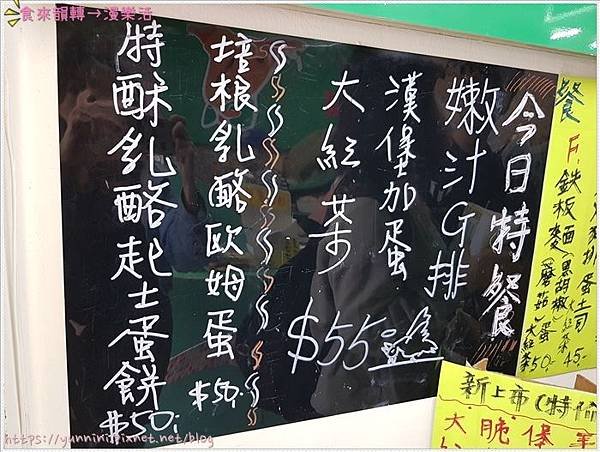 食來韻轉→漫樂活
今日特餐
嫩汁G排
漢堡加蛋
大紅茶
$55元
培根乳酪歐姆蛋
$50.
特酥乳酪起士蛋餅
$50.
餐
F.
鉄板麵(黑胡椒
(蘑菇)蛋
大紅茶50.
蛋吐司
紅茶
45.
新上市(特價
大
脆
堡
https://yunnini.pixnet.net/blog